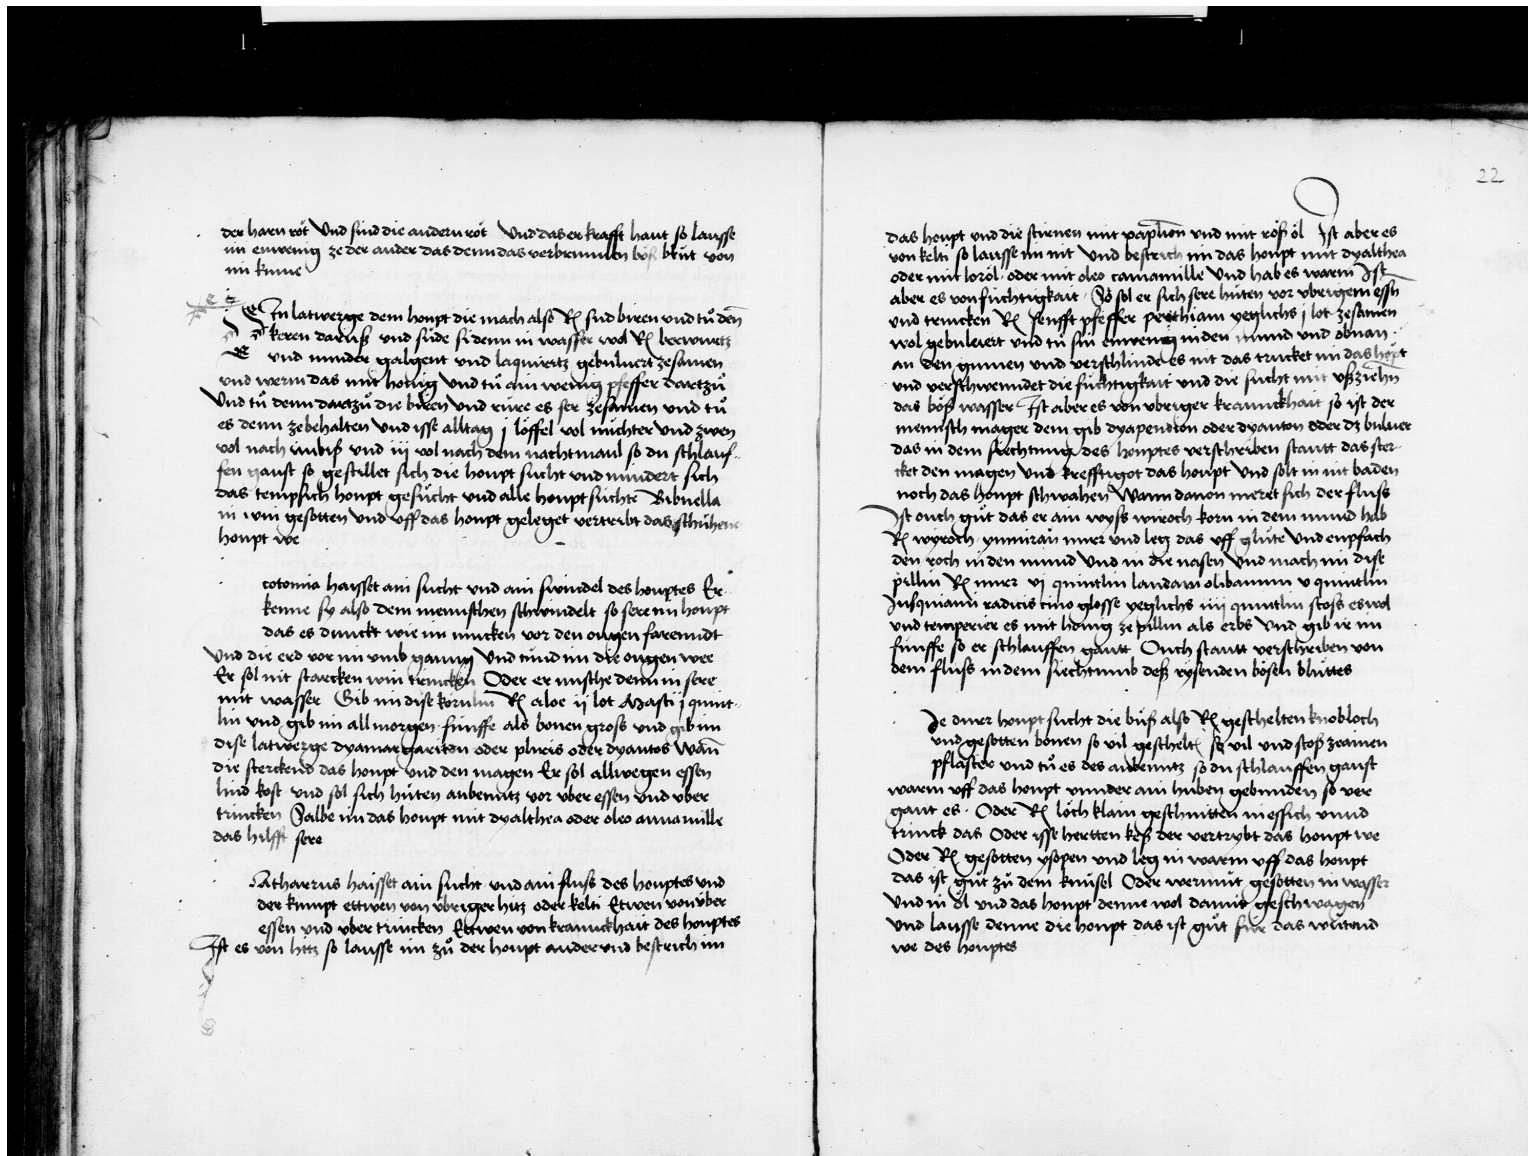 der harn röt Und sind die andern röt Und das er krafft haut so lausse
im ein wenig ze der ander das denn das verbrunnen böß blůt von
im kume
Ein latwerge dem houpt die mach also R sud biren und tů den
keren daruß und süde si denn in wasser wol R berwurtz
und minder galgent und laquiritz gebuluert zesamen
und werm das mit honig und tů ain wenig pfeffer dartzů
Und tů denn dartzů die biren und rüre es ser zesamen und tů
es denn zebehalten und isse alltag j löffel vol nüchter und zwen
vol nach imbiß und iij vol nach dem nachtmaul so du schlauf-
fen gaust so gestillet sich die houpt sucht und mindert sich
das houpt gesücht und alle houpt süchte Bibnella
in win gesotten und uff das houpt geleget vertribt das
houpt we
cotomia haisset ain sucht und ain swindel des houptes Er-
kenne sy also dem menschen schwindelt so sere im houpt
das es dunckt wie im mucken vor den ougen farenndt
Und die erd vor im umb ganng Und tünd im die ougen wee
Er sol nit starcken win trincken Oder er misthe denn in sere
mit wasser Gib im dise körnlin R aloe ij lot Masti j quint-
lin und gib im all morgen fünffe als bonen gross und gib im
dise latwerge dyamargariton oder pliris oder dyantos Wan
die sterckend das houpt und den magen Er sol allwegen essen
lind kost und sol sich hüten aubentz vor über essen und über
trincken Salbe im das houpt mit dyalthea oder oleo camamille
das hilfft sere
Catharrus haisset ain sucht und ain fluss des houptes und
der kumpt ettwen von übriger hitz oder kelti Etwen von über
essen und über trincken Ettwen von kranckhait des houptes
Ist es von hitz so lausse im zů der houpt ander und bestrich im
22
das houpt und die stirnen mit papelion und mit röß öl Ist aber es
von kelti so lausse im nit Und bestrich im das houpt mit dyalthea
oder mit loröl oder mit oleo camamille Und hab es warm Ist
aber es von füchtigkait So sol er sich sere hüten vor übrigem essen
und trincken R senfft pfeffer yeglichs j lot zesamen
wol gebuluert und tů sin ein wenig in den mund und obnan
an den gumen und verschlinde es nit das trucket im das houpt
und verschwenndet die füchtigkait und die sucht mit ußziehn
das böß wasser Ist aber es von übriger kranckhait so ist der
mennsch mager dem gib dyapendion oder dyanton oder dz buluer
das in dem siechtum des houptes verschriben stautt das ster-
cket den magen Und krefftigot das houpt Und solt in nit baden
noch das houpt schwahen Wann dauon meret sich der fluss
Ist ouch gůt das er ain wyss wiroch korn in dem mund hab
R wyroch mirr und leg das uff glüte Und enpfach
den roch in den mund Und in die nasen Und mach im dise
pillin R mirr vj quintlin laudani olibanum v quintlin
Jusquiami radicis cino glosse yeglichs iiij quintlin stoss es wol
und temperier es mit honig ze pillin als erbs Und gib ir im
fünffe so er schlauffen gautt Ouch stautt verschriben von
dem fluss in dem siechtumb deß rysenden bösen blüttes
De ainer houpt sucht die büß also R geschelten knobloch
und gesotten bonen so vil geschelten so vil und stoß ze ainen
pflaster und tů es des aubentz so du schlauffen gaust
warm uff das houpt under ain huben gebunden so ver
gaut es Oder R löch klain geschnitten in essich unnd
trinck das Oder isse hertten keß der vertrybt das houpt we
Oder R gesotten ysopen und leg in warm uff das houpt
das ist gůt zů dem knüsel Oder wermůt gesotten in wasser
Und in öl und das houpt denne wol damit geschwagen
Und lausse denne die houpt das ist gůt für das wütend
we des houptes